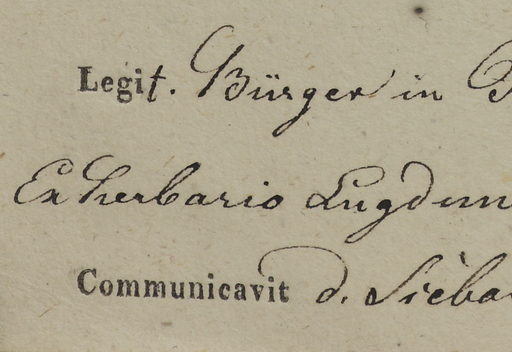 Legit. Bürger in
Ex herbario Lugdun
Communicavit d. Sieba